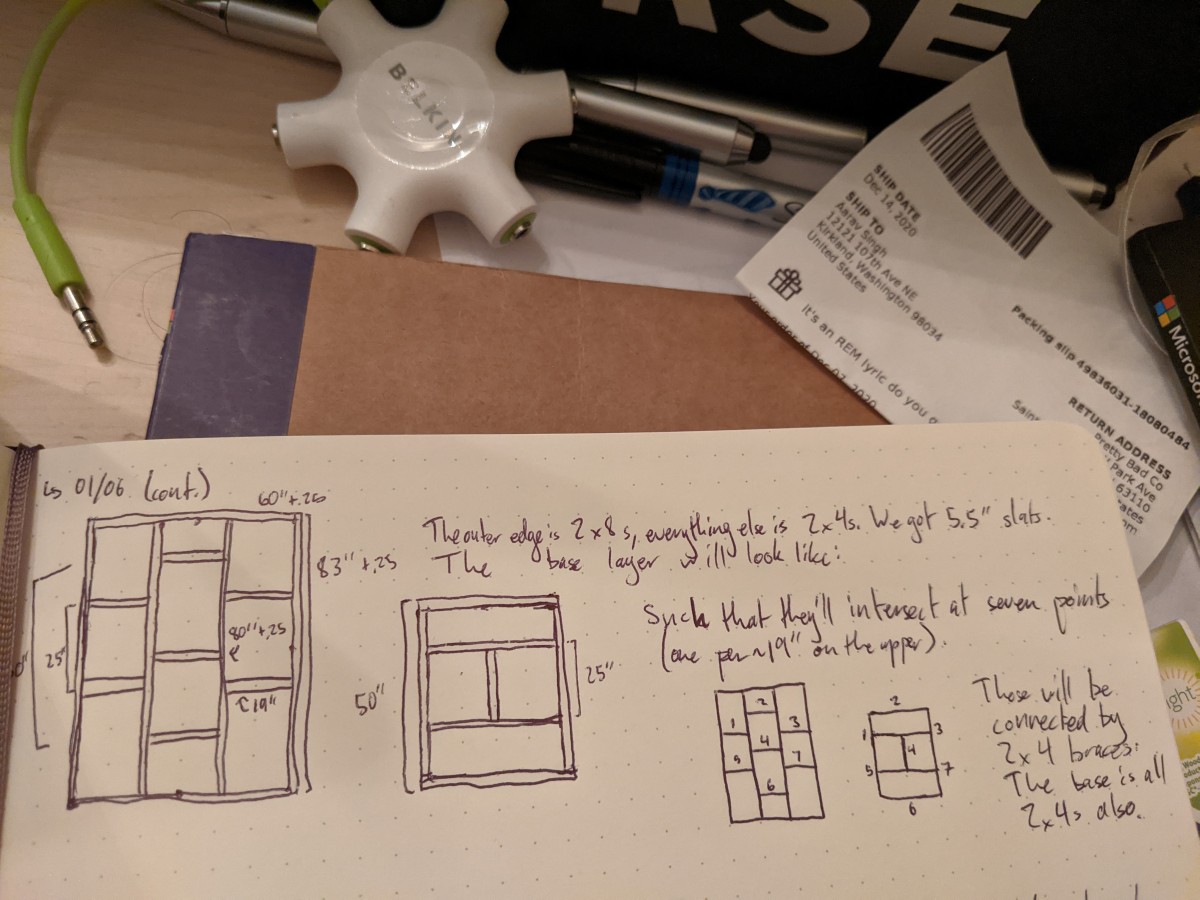 RSE
BELKIN
SHIP DATE
Dec 14, 2020
SHIP TO
Aarav Singh
12121 107th Ave NE
Kirkland, Washington 98034
United States
It's an REM lyric do you
Your order of Dec 07, 2020
Packing slip 49836031-18080484
RETURN ADDRESS
Pretty Bad Co
Park Ave
63110
Microsof
01/06 (cont.)
60"+.25
83"+.25
25"
80"+.25
19"
The outer edge is 2x8s, everything else is 2x4s. We got 5.5" slats.
The base layer will look like:
50"
25"
Such that they'll intersect at seven points
(one per ~19" on the upper).
1 2 3
4
5 7
6
2
1 3
4
5 7
6
These will be
connected by
2x4 braces.
The base is all
2x4s also.